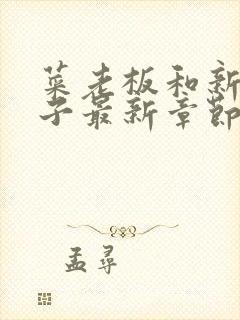 菜老板和新
子最新章节
孟寻